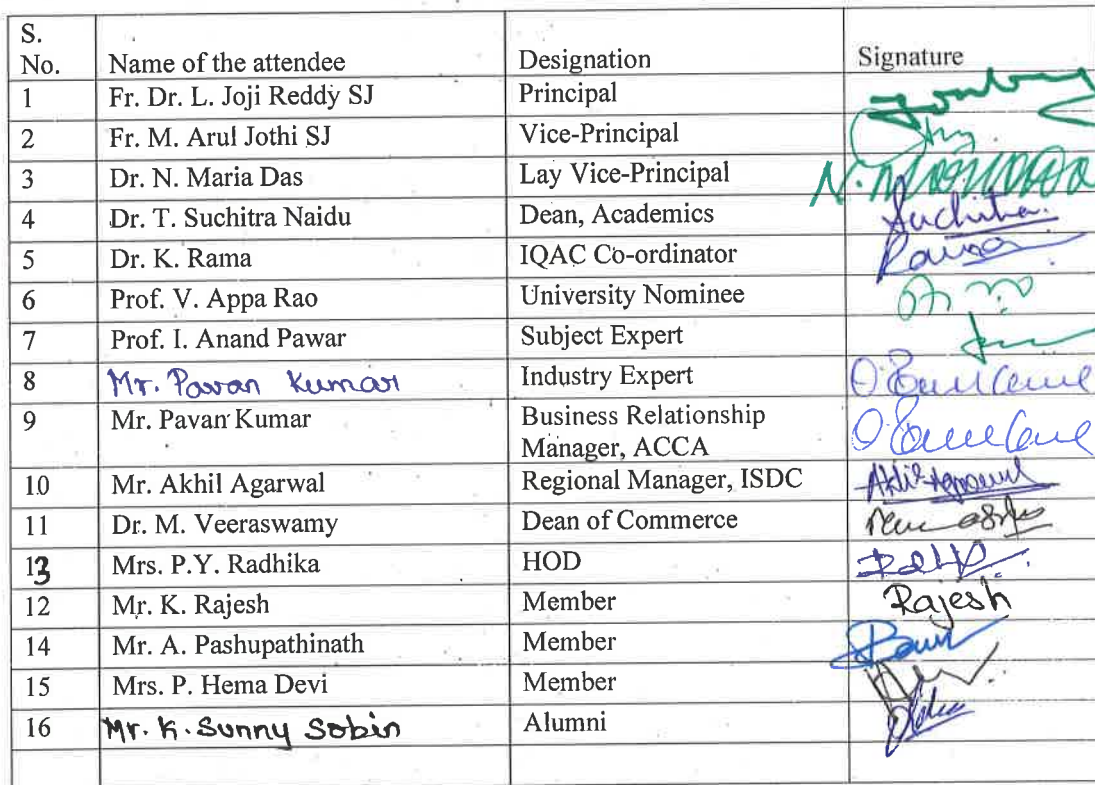 S.
No. Name of the attendee Designation Signature
1 Fr. Dr. L. Joji Reddy SJ Principal
2 Fr. M. Arul Jothi SJ Vice-Principal
3 Dr. N. Maria Das Lay Vice-Principal
4 Dr. T. Suchitra Naidu Dean, Academics Suchitra
5 Dr. K. Rama IQAC Co-ordinator Rama
6 Prof. V. Appa Rao University Nominee
7 Prof. I. Anand Pawar Subject Expert
8 Mr. Pavan Kumar Industry Expert
9 Mr. Pavan Kumar Business Relationship
Manager, ACCA
10 Mr. Akhil Agarwal Regional Manager, ISDC
11 Dr. M. Veeraswamy Dean of Commerce
13 Mrs. P.Y. Radhika HOD
12 Mr. K. Rajesh Member Rajesh
14 Mr. A. Pashupathinath Member
15 Mrs. P. Hema Devi Member
16 Mr. K. Sunny Sobin Alumni